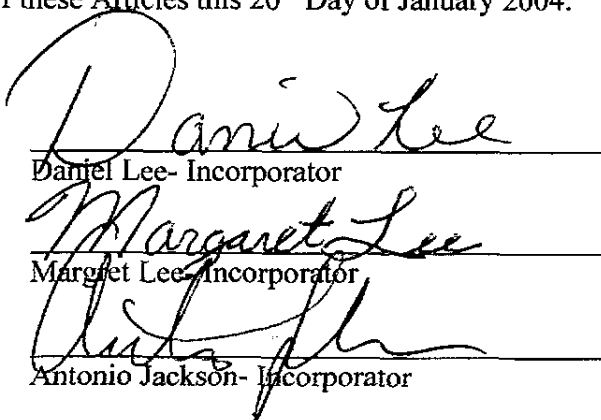 these Articles this 20th Day of January 2004.
Daniel Lee
Daniel Lee- Incorporator
Margaret Lee
Margret Lee- Incorporator
Antonio Jackson- Incorporator